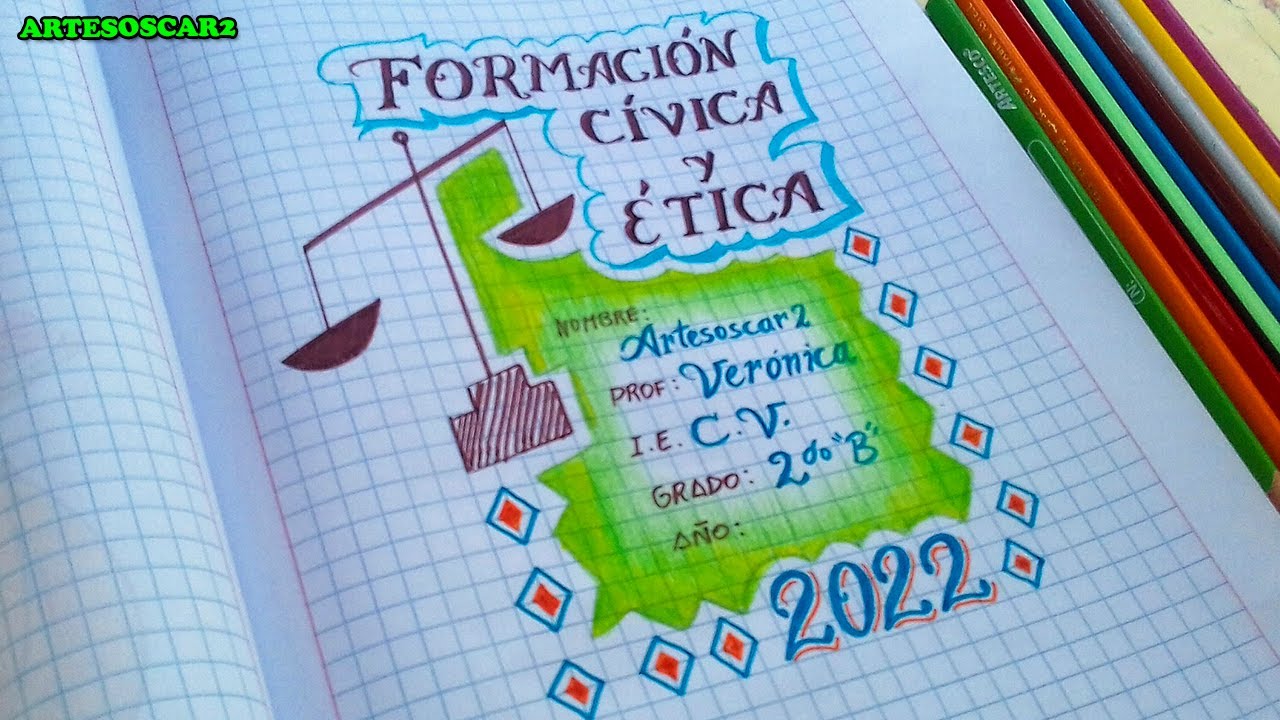 ARTESOSCAR2
FORMACIÓN
CÍVICA
y
ÉTICA
NOMBRE:
Artesoscar2
PROF: Verónica
I.E. C.V.
GRADO: 2do "B"
AÑO:
2022
ARTESCO